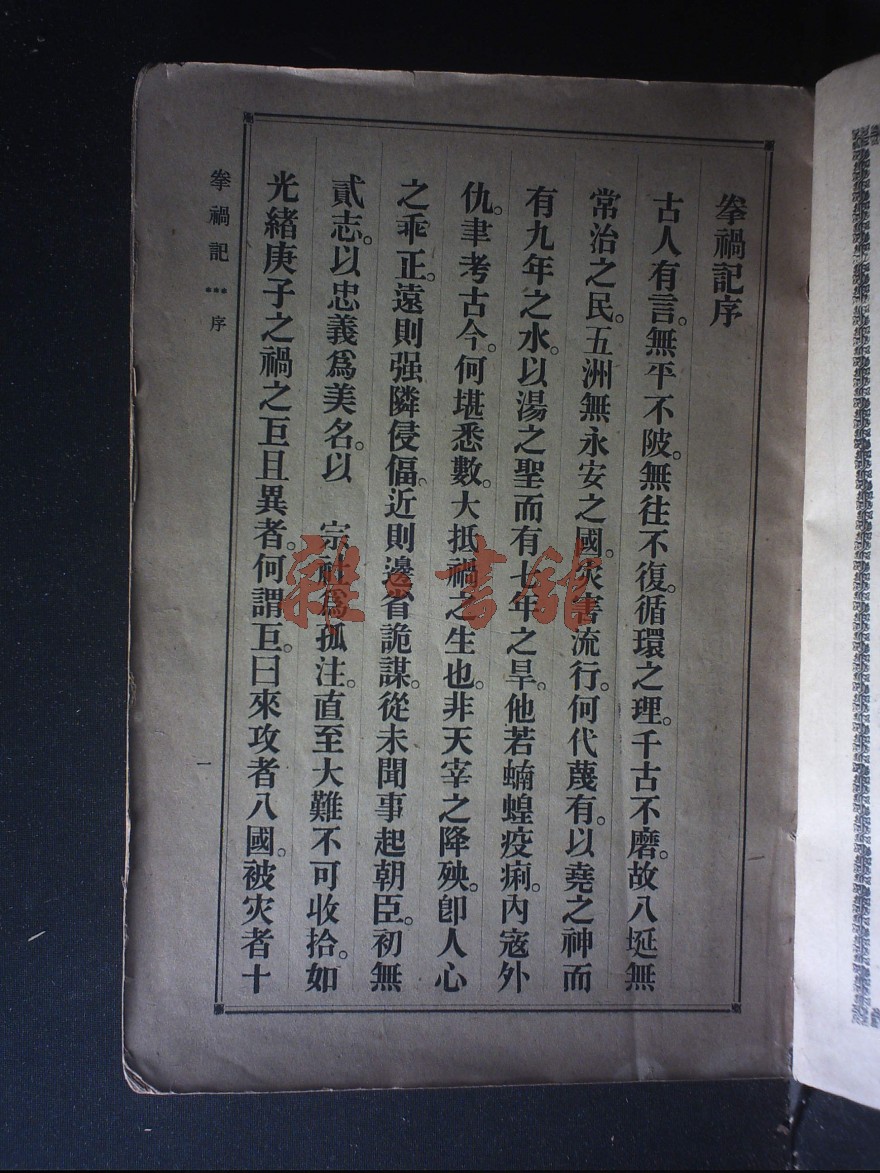 拳禍記序
古人有言。無平不陂。無往不復。循環之理。千古不磨。故八埏無
常治之民。五洲無永安之國。灾害流行。何代蔑有。以堯之神而
有九年之水。以湯之聖而有七年之旱。他若蝻蝗疫痢。內寇外
仇。聿考古今。何堪悉數。大抵禍之生也。非天宰之降殃。卽人心
之乖正。遠則强隣侵偪。近則邊省詭謀。從未聞事起朝臣。初無
貳志。以忠義爲美名。以　宗社爲孤注。直至大難不可收拾。如
光緒庚子之禍之巨且異者。何謂巨。曰來攻者八國。被灾者十
拳禍記 *** 序
一
雜·書館